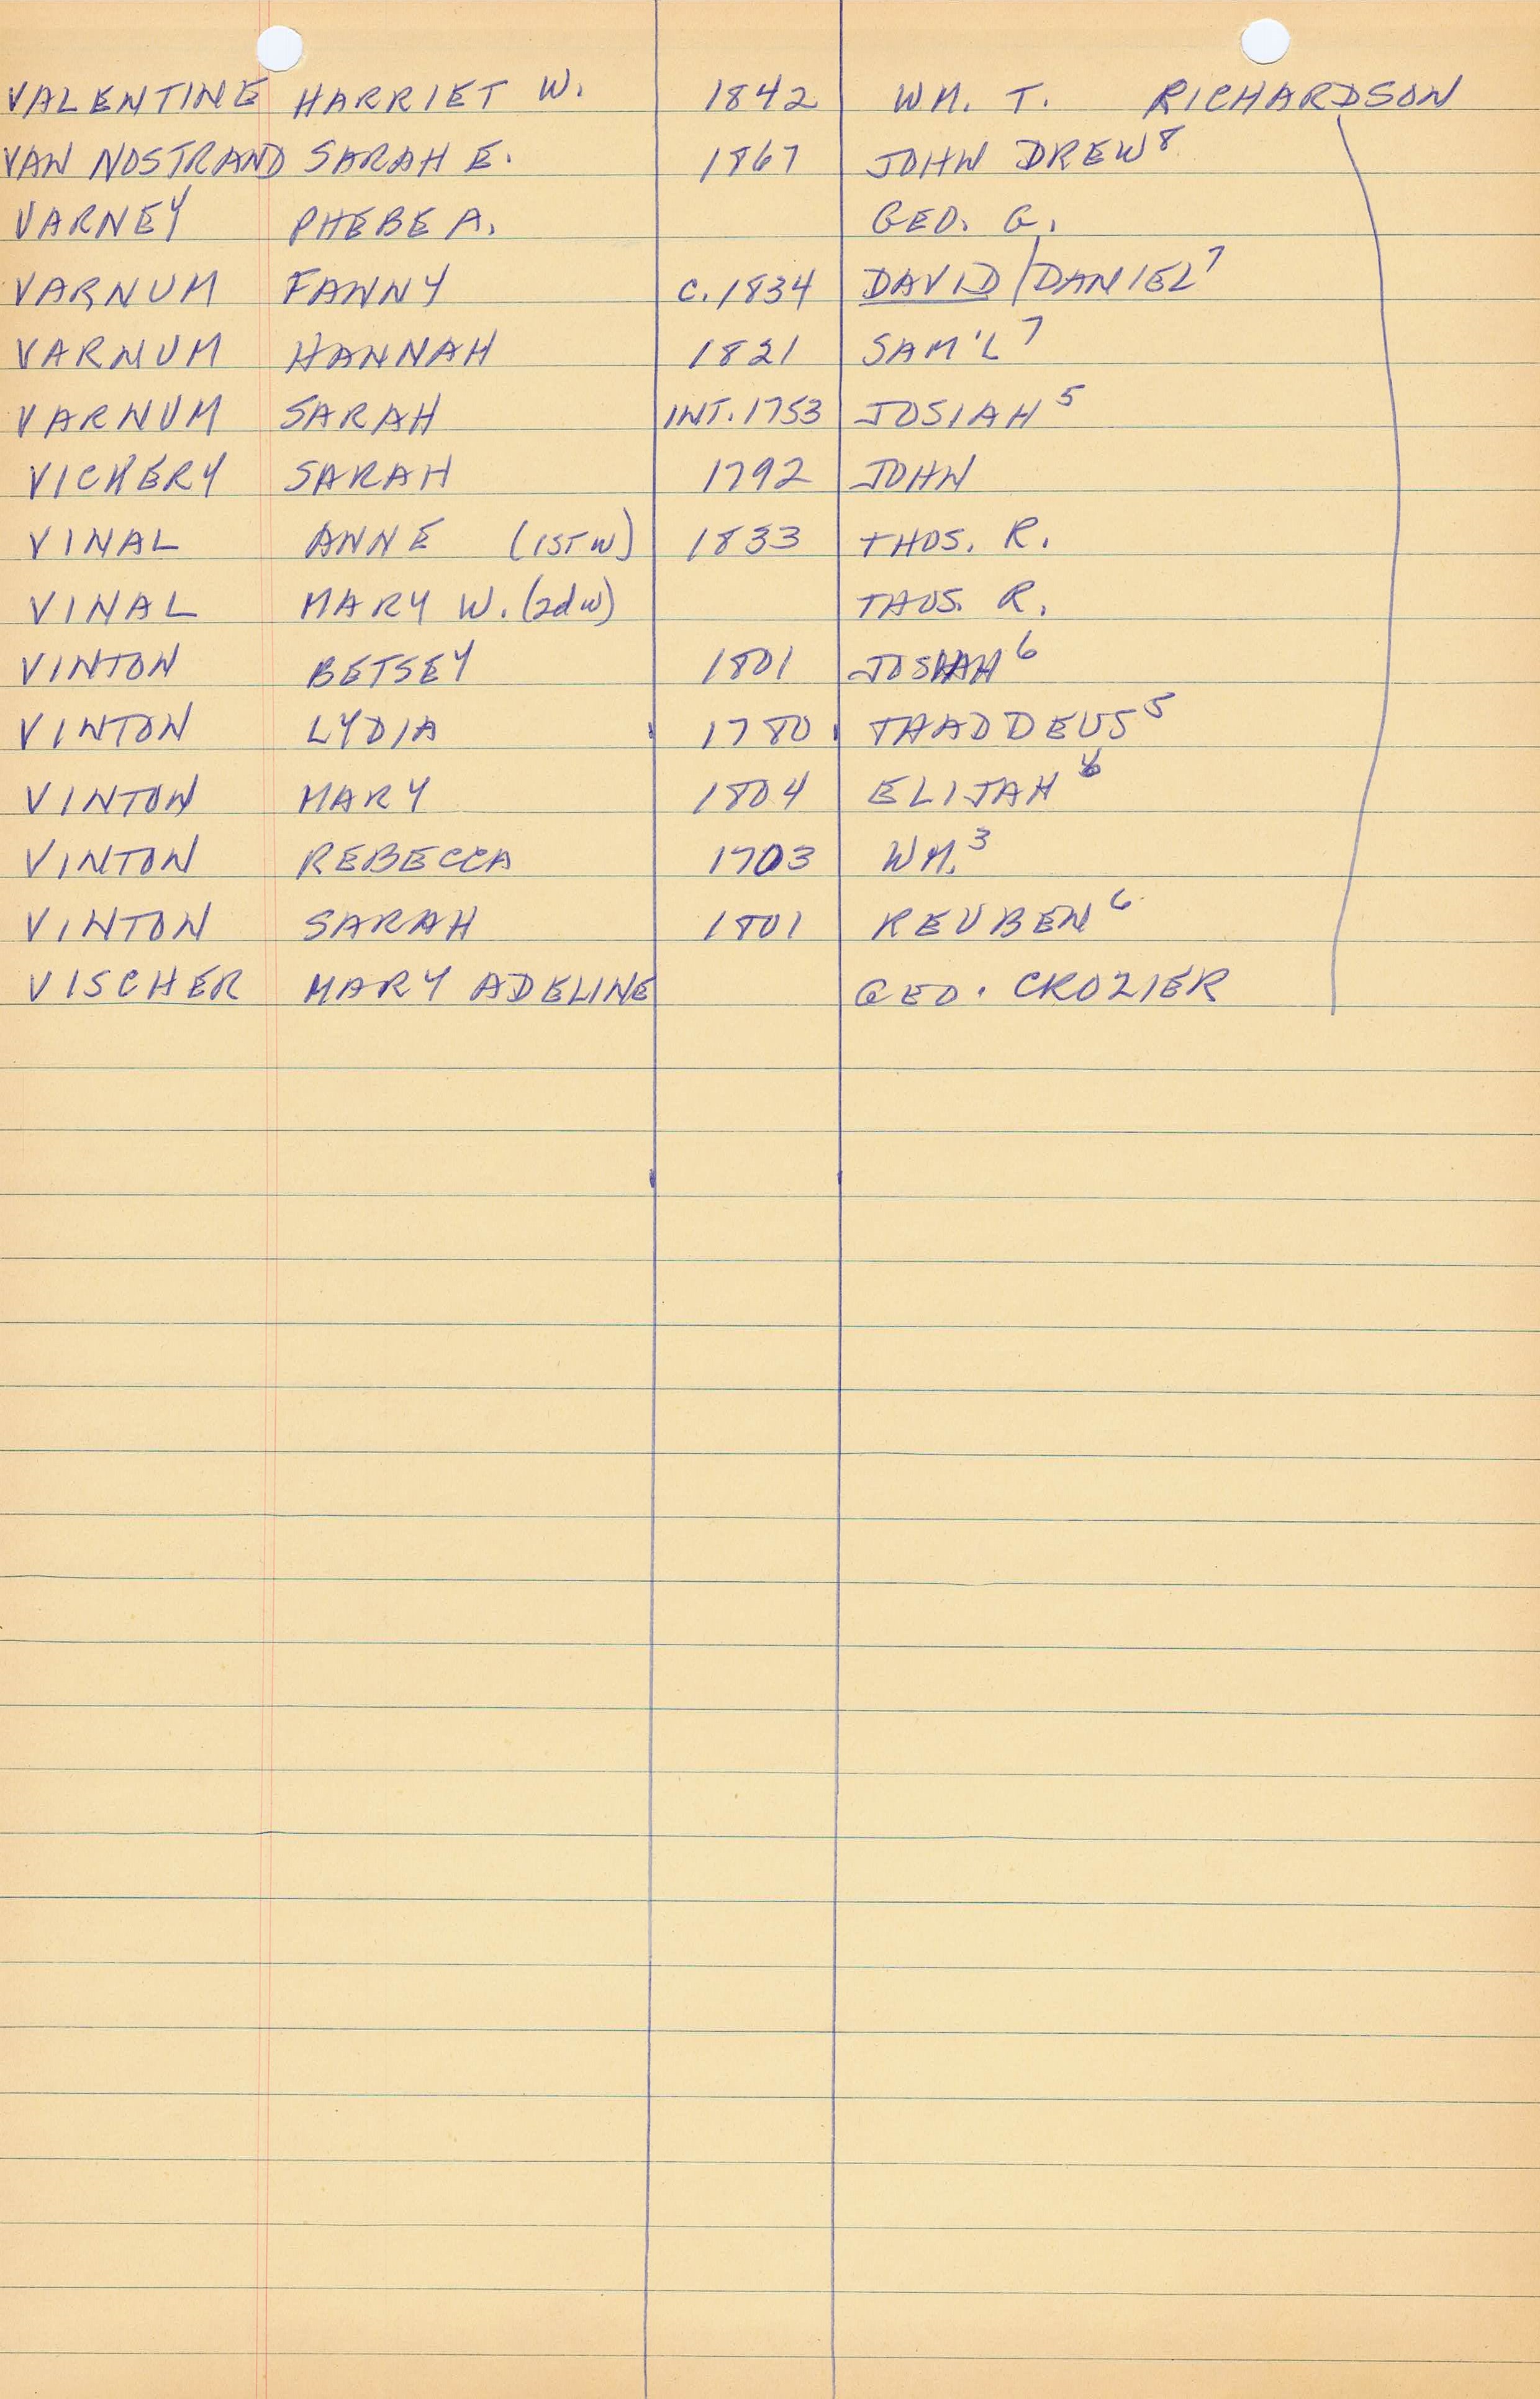 VALENTINE HARRIET W. 1842 WM. T. RICHARDSON
VAN NOSTRAND SARAH E. 1867 JOHN DREW⁸
VARNEY PHEBE A. GEO. G.
VARNUM FANNY C. 1834 DAVID/DANIEL⁷
VARNUM HANNAH 1821 SAM'L⁷
VARNUM SARAH INT. 1753 JOSIAH⁵
VICKERY SARAH 1792 JOHN
VINAL ANNE (1ST W) 1833 THOS. R.
VINAL MARY W. (2d W) THOS. R.
VINTON BETSEY 1801 JOSIAH⁶
VINTON LYDIA 1780 THADDEUS⁵
VINTON MARY 1804 ELIJAH
VINTON REBECCA 1703 WM.³
VINTON SARAH 1801 REUBEN⁶
VISCHER MARY ADELINE GEO. CROZIER